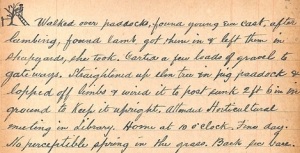 Walked over paddocks, found young ewe cast, after
lambing, found lamb, got them in & left them in
sheepyards, she took. Carted a few loads of gravel to
gateways. Straightened up elm tree in pig paddock &
lopped off limbs & wired it to post sunk 2ft 6 in in
ground to keep it upright, attended Horticultural
meeting in Library. Home at 10 o'clock. Fine day.
No perceptible spring in the grass. Back for